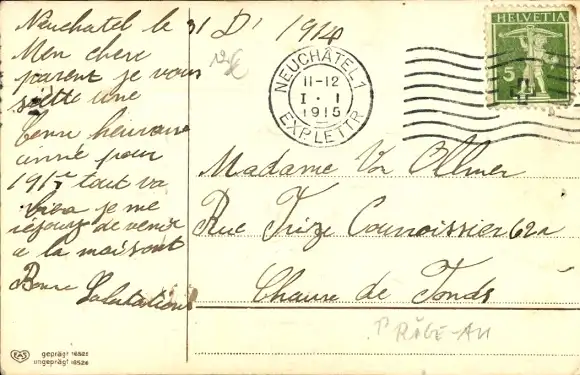 Neuchatel le 31 D' 1914
Mon chere
parent je vous
 une
bonne heureuse
année pour
1915 tout va
vien je me
réjouis de venir
a la maisont
Bonne
Salutations
NEUCHÂTEL 1
11-12
I · 1
1915
EXP. LETTR
HELVETIA
5
Madame Von Ollmer
Rue Frize Cournoissier 62a
Chaure de Fonds
RÄGE-AU
EAS
geprägt 18526
ungeprägt 18526